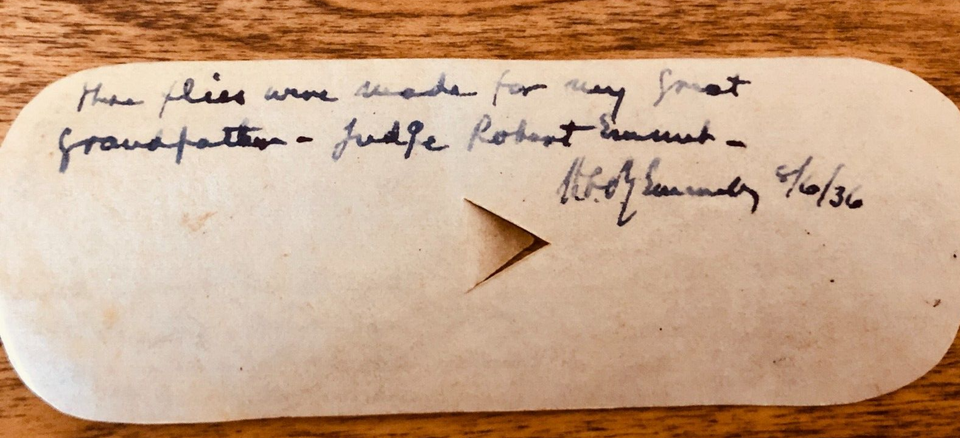 These flies were made for my Great
Grandfather - Judge Robert Emmet -
8/6/36